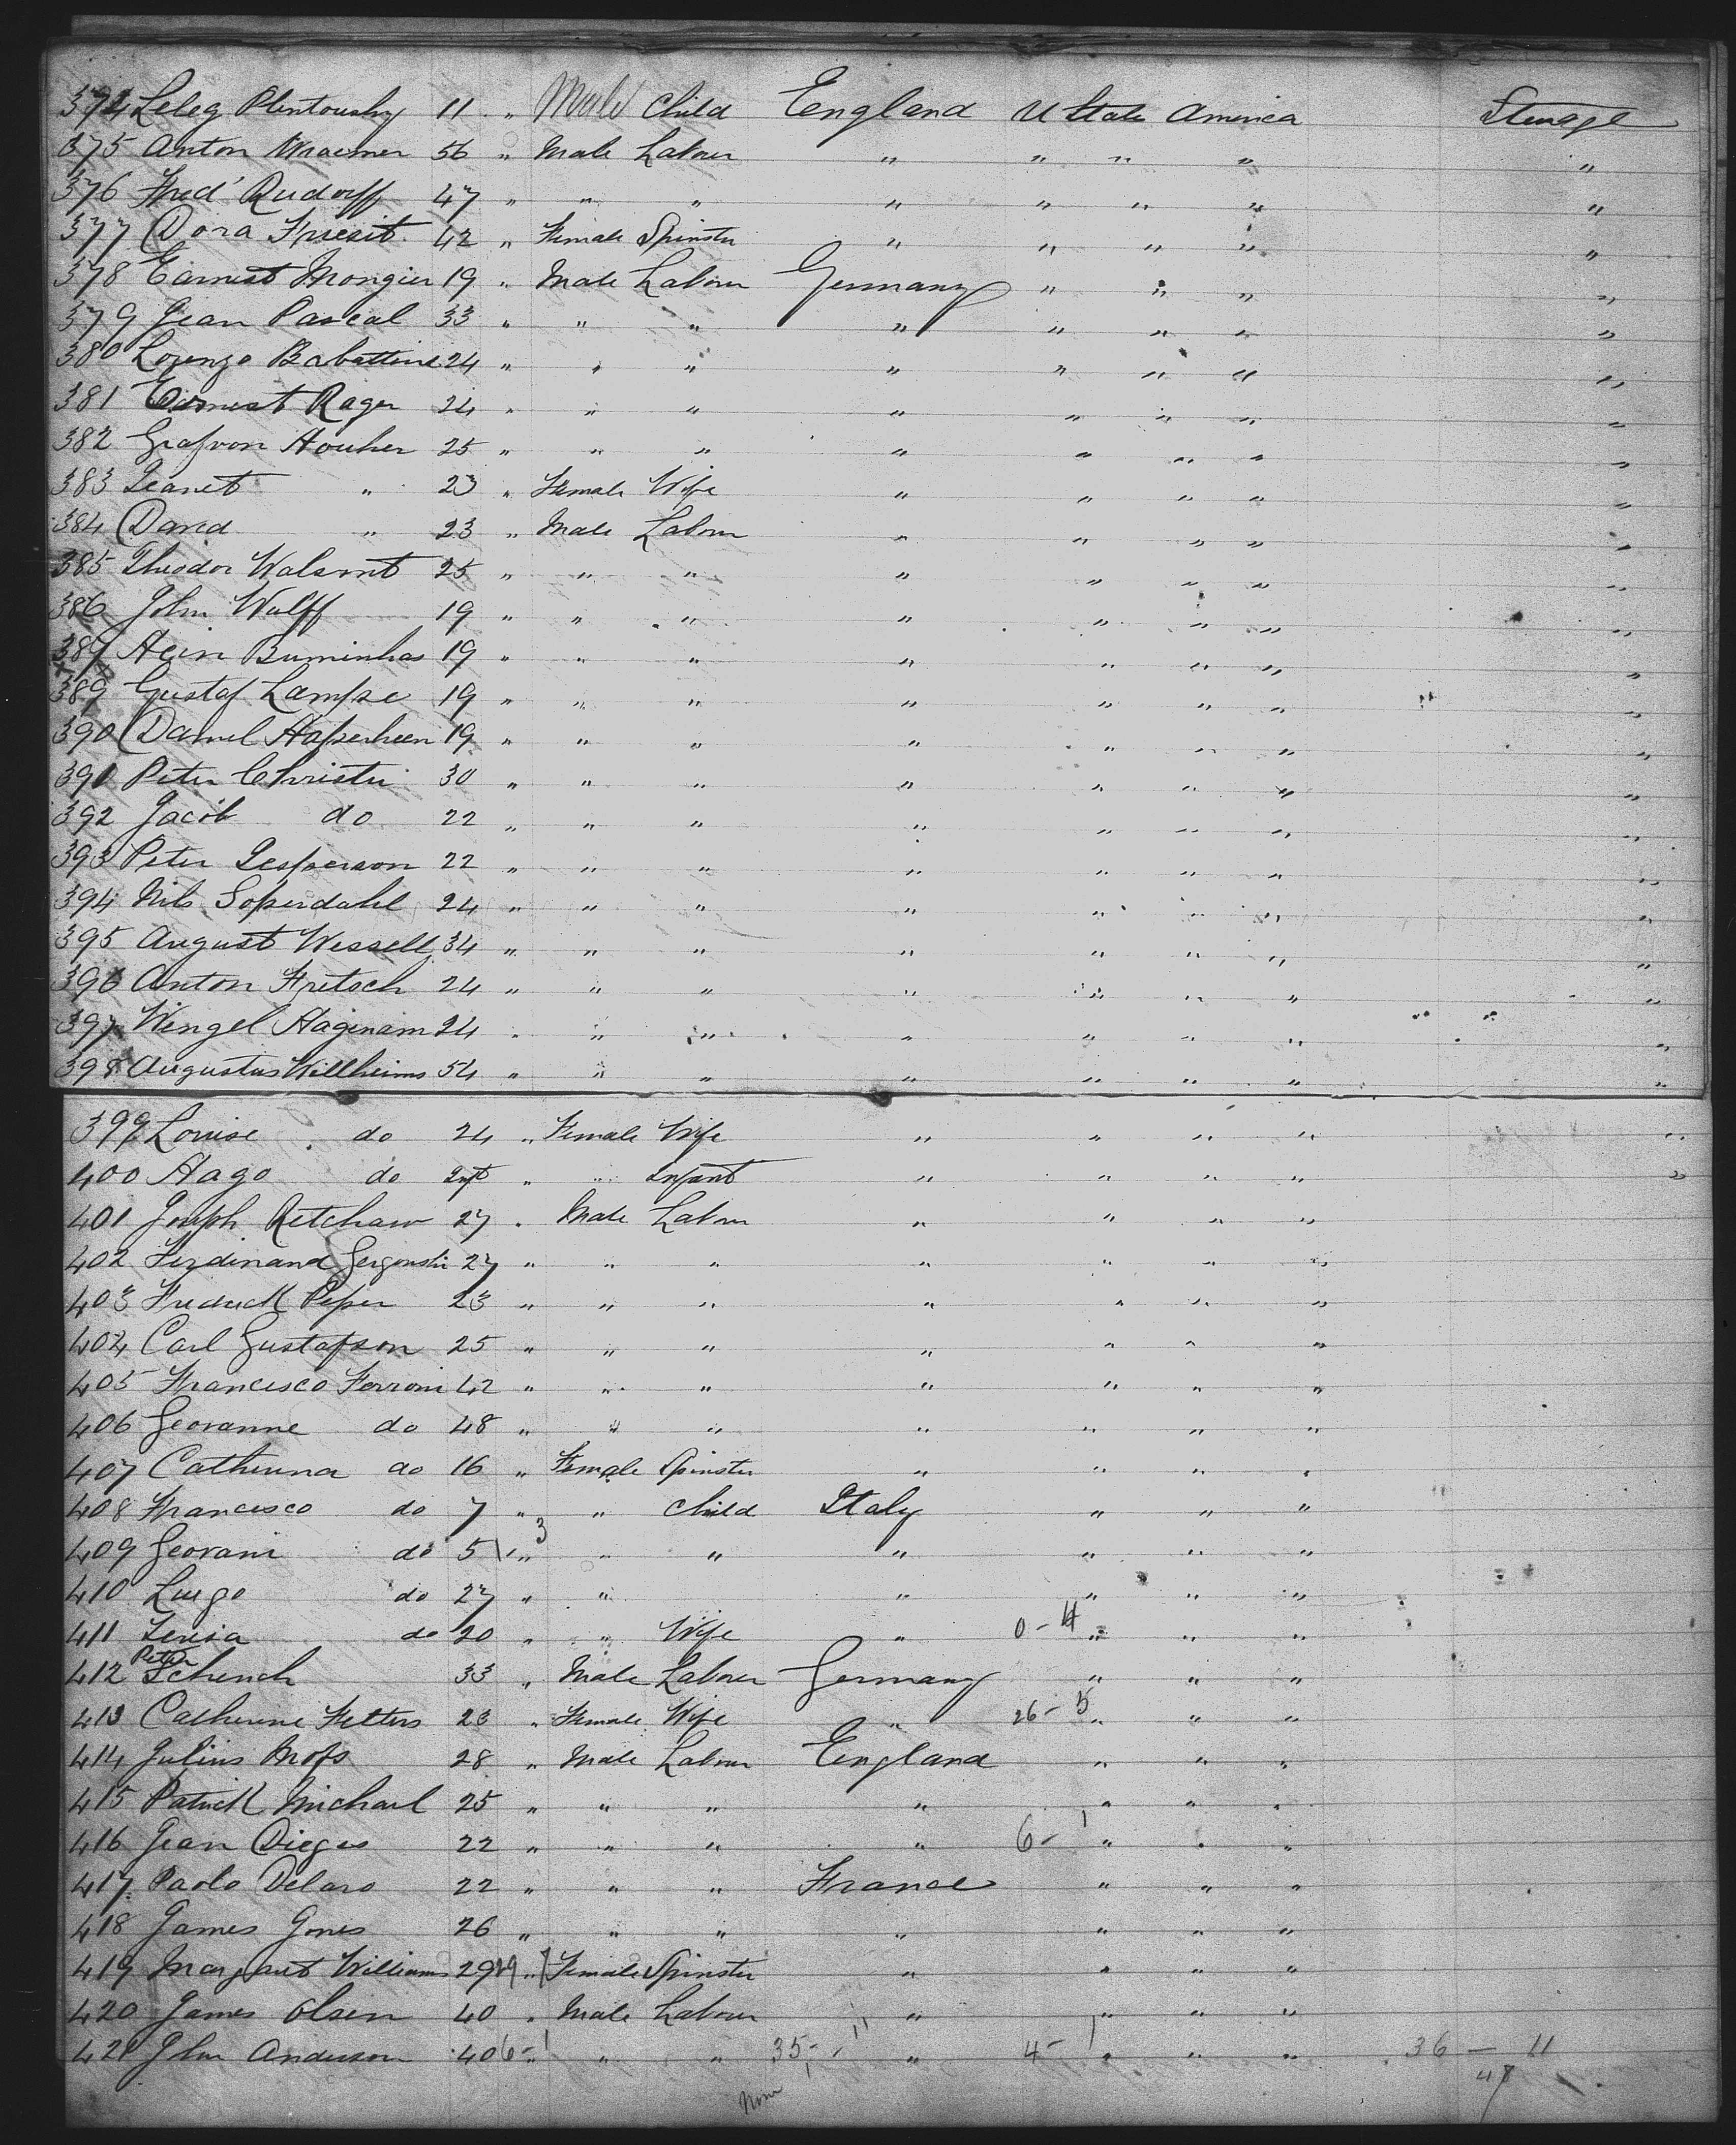 374 Leleg Plentoushy 11 " Male Child England U State America Steerage
375 Anton Wraemer 56 " Male Labour " " " " "
376 Fred' Rudorff 47 " " " " " " " "
377 Dora Fruesit 42 " Female Spinster " " " " "
378 Earnest Mongier 19 " Male Labour Germany " " " "
379 Jean Pascal 33 " " " " " " " "
380 Lorenzo Babattine 24 " " " " " " " "
381 Earnest Rager 24 " " " " " " " "
382 Grafvon Houher 25 " " " " " " " "
383 Jeanet " 23 " Female Wife " " " " "
384 David " 23 " Male Labour " " " " "
385 Theodor Walsmt 25 " " " " " " " "
386 John Wulff 19 " " " " " " " "
387 Hein Buminhas 19 " " " " " " " "
389 Gustaf Lampe 19 " " " " " " " "
390 Daniel Haperheen 19 " " " " " " " "
391 Peter Christie 30 " " " " " " " "
392 Jacob do 22 " " " " " " " "
393 Peter Jesperson 22 " " " " " " " "
394 Nils Soperdahl 24 " " " " " " " "
395 August Wessell 34 " " " " " " " "
396 Anton Fritsch 24 " " " " " " " "
397 Wengel Haginam 24 " " " " " " " "
398 Augustus Willheims 54 " " " " " " " "
399 Louise do 24 " Female Wife " " " " "
400 Hago do Inft " " Infant " " " " "
401 Joseph Retchaw 27 " Male Labour " " " "
402 Ferdinand Gergonshi 27 " " " " " " "
403 Fredrick Peper 23 " " " " " " "
404 Carl Gustafson 25 " " " " " " "
405 Francesco Ferroni 42 " " " " " " "
406 Geovanne do 48 " " " " " " "
407 Catherina do 16 " Female Spinster " " " "
408 Francesco do 7 " " Child Italy " " "
409 Geovani do 5 " 3 " " " " " "
410 Luigo do 27 " " " " " "
411 Teresa do 20 " " Wife " 0 - 4 " " "
412 Peter Schench 33 " Male Labour Germany " " "
413 Catherine Fetters 23 " Female Wife " 26 - 5 " " "
414 Julius Mofs 28 " Male Labour England " " "
415 Patrick Michael 25 " " " " " " "
416 Jean Diegas 22 " " " " 6 - 1 " " "
417 Paolo Delaro 22 " " " France " " "
418 James Jones 26 " " " " " " "
419 Margaret Williams 29 " Female Spinster " " " "
420 James Olsen 40 " Male Labour " " " "
421 John Anderson 40 6 - 1 " " " 35 - 11 " 4 - 1 " " " 36 — 11
47